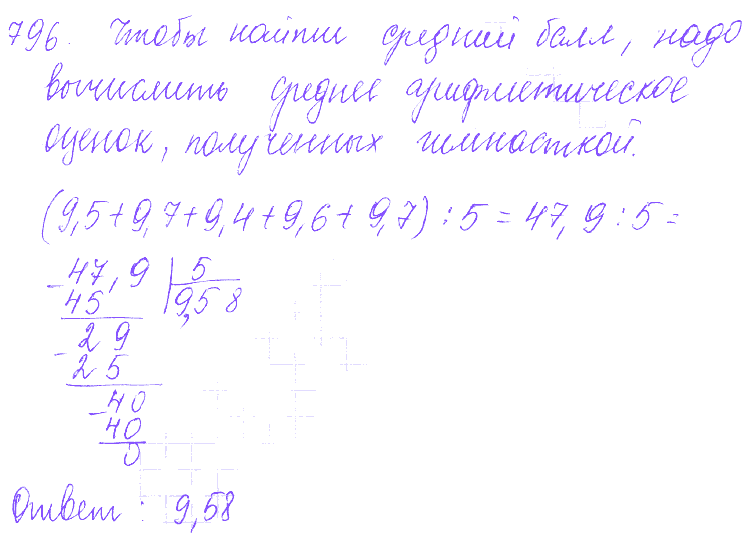 796. Чтобы найти средний балл, надо
вычислить среднее арифметическое
оценок, полученных гимнасткой.
(9,5+9,7+9,4+9,6+9,7):5=47,9:5=
-47,9 | 5
45 9,58
-29
25
-40
40
0
Ответ: 9,58